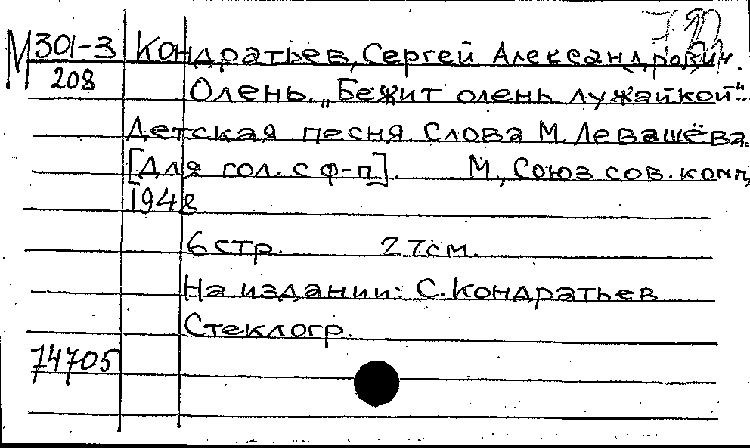 М 301-3 Кондратьев, Сергей Александрович.
208 Олень. „Бежит олень лужайкой“...
Детская песня Слова М. Левашёва.
[Для гол. с ф-п]. М, Союз сов. комп,
1948
6 стр. 27см.
На издании: С. Кондратьев
Стеклогр.
74705